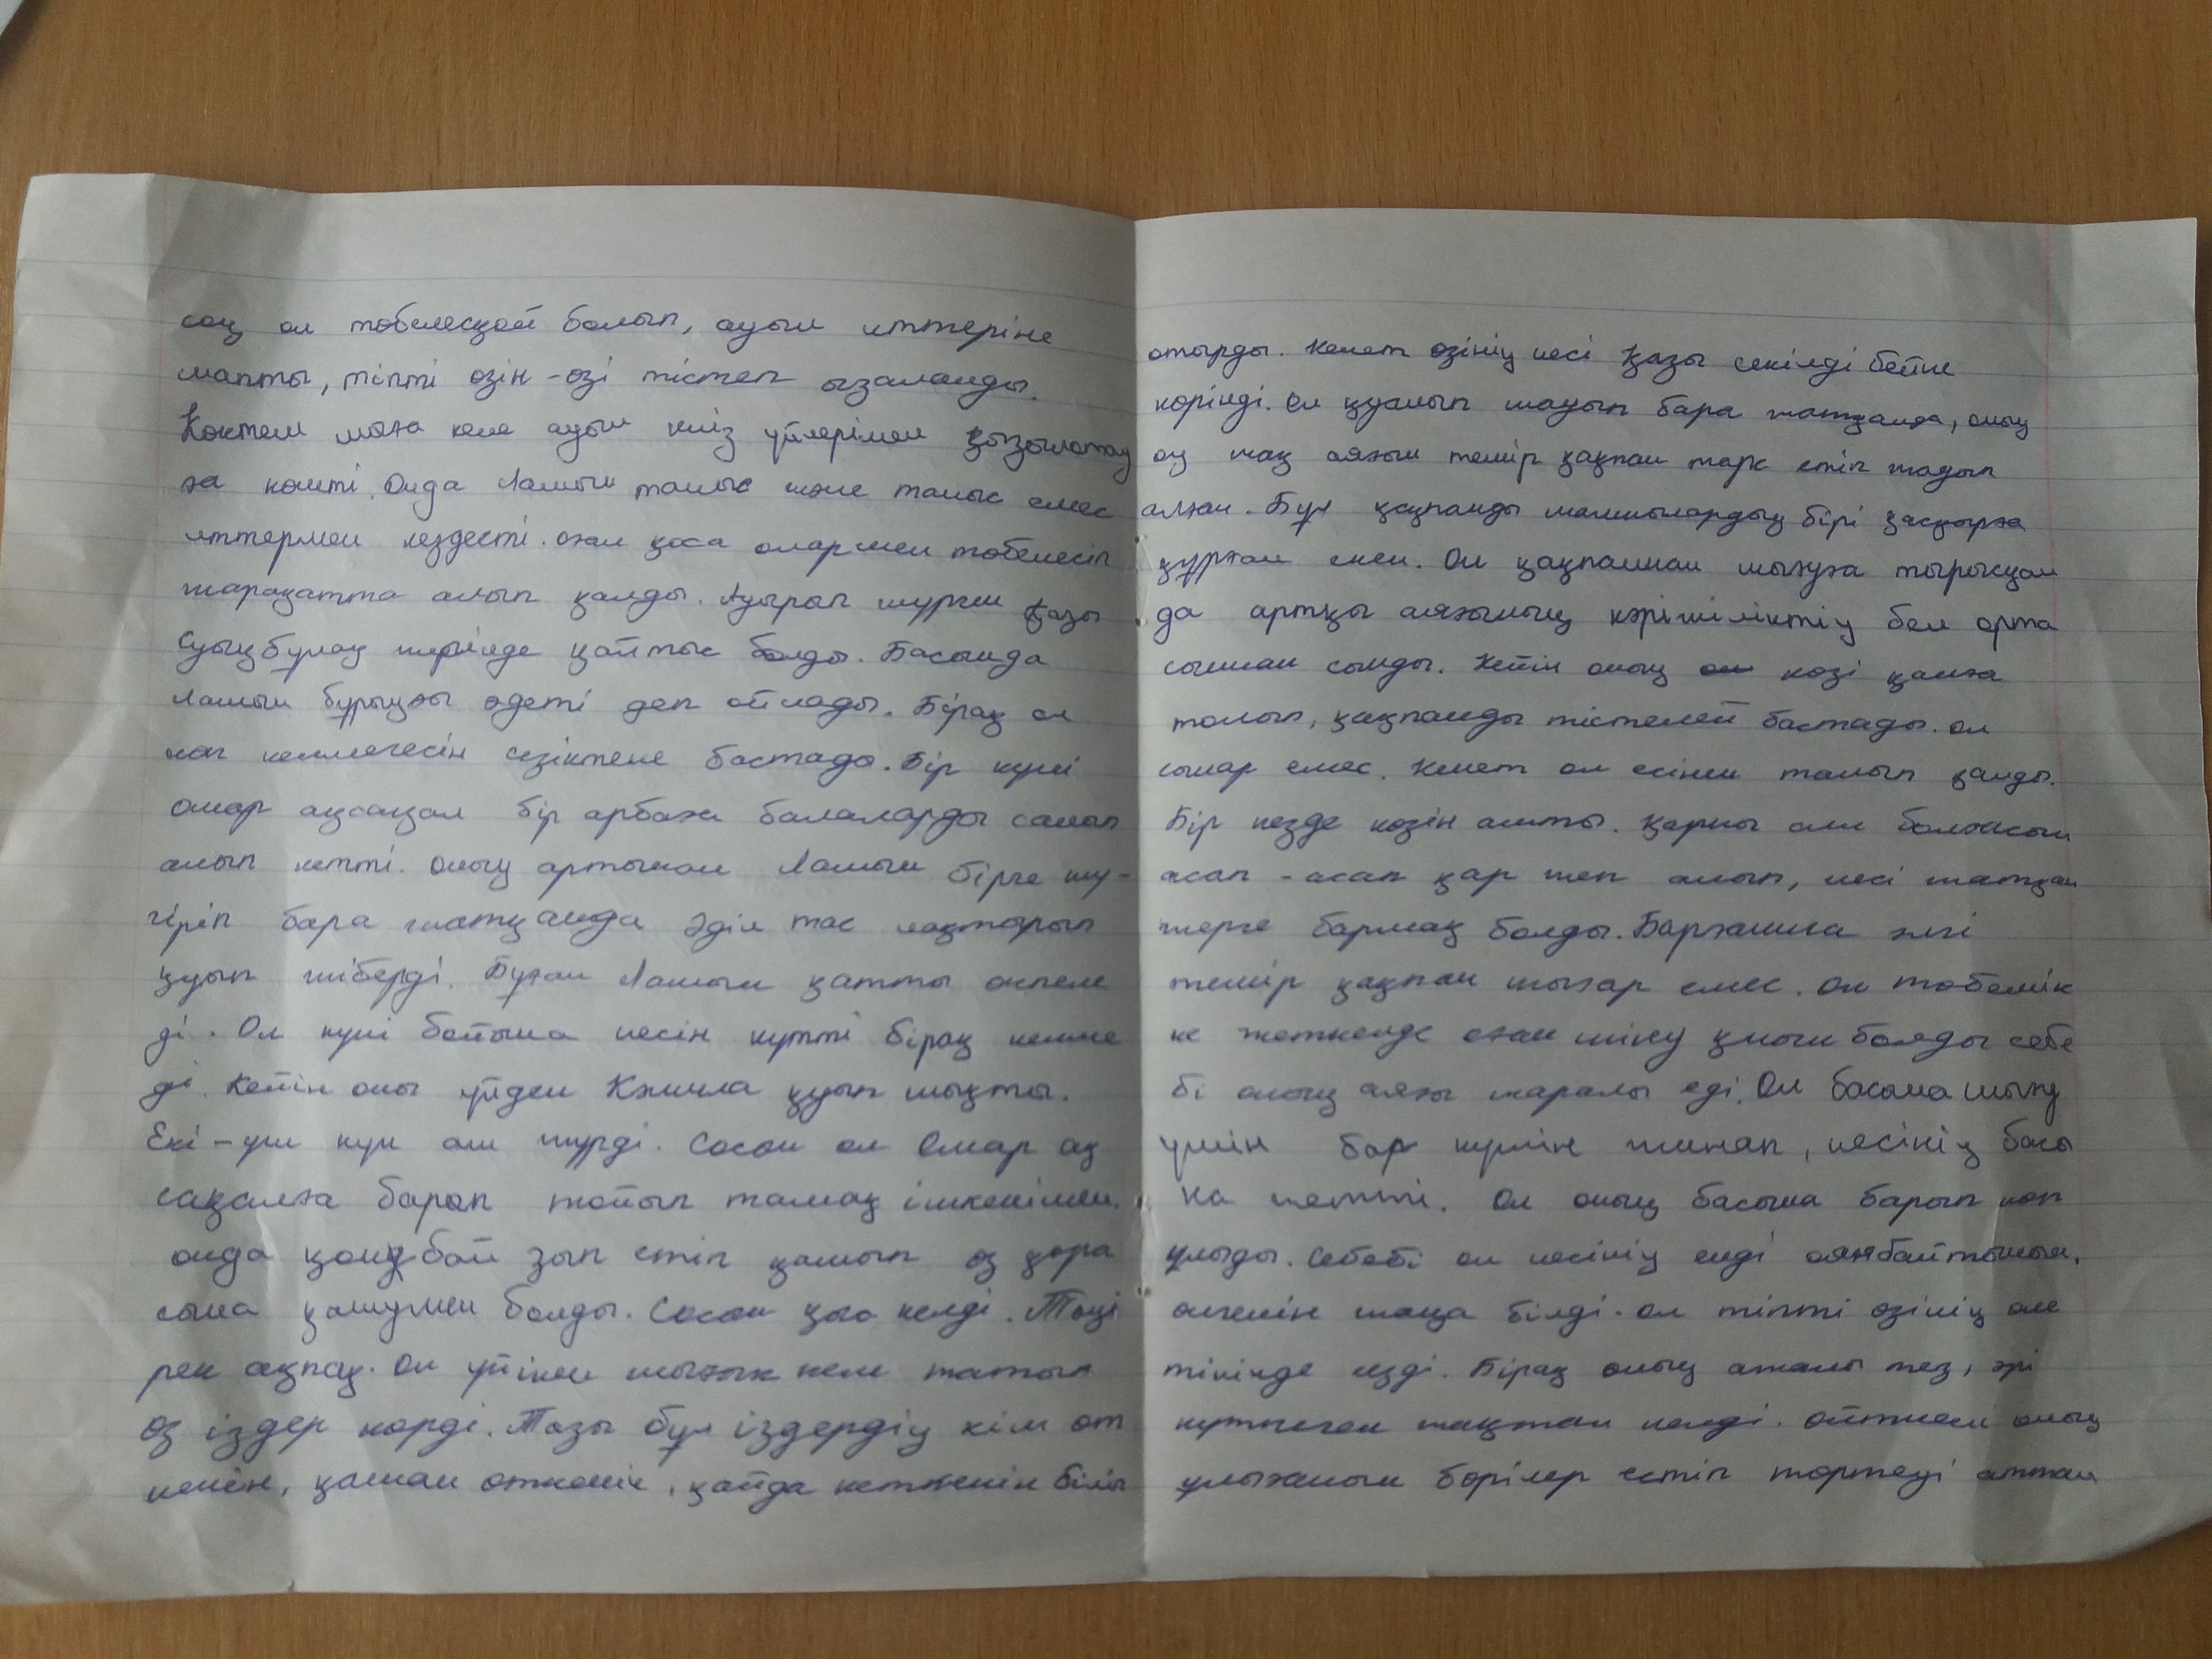 соң ол төбелесқой болып, ауыл иттеріне
шапты, тіпті өзін-өзі тістеп ызаланды.
Көктем шыға келе ауыл киіз үйлерімен Қызылотау
ға көшті. Онда Лашын таныс және таныс емес
иттермен кездесті. оған қоса олармен төбелесіп
жарақатта алып қалды. Ауырып жүрген Қазы
Суықбұлақ жерінде қайтыс болды. Басында
Лашын бұрынғы әдеті деп ойлады. Бірақ ол
көп келмегесін сезіктене бастады. Бір күні
Омар ақсақал бір арбаға балаларды салып
алып кетті. оның артынан Лашын бірге жү-
гіріп бара жатқанда Әділ тас лақтырып
қуып жіберді. Бұған Лашын қатты өкпеле
ді. Ол күні бойына иесін күтті бірақ келме
ді. Кейін оны үйден Кәмила қуып шықты.
Екі-үш күн аш жүрді. Сосын ол Омар ақ
сақалға барып тойып тамақ ішкенімен,
онда қонбай зып етіп қашып өз қора
сына қашумен болды. Сосын қыс келді. Тәңі
рек аппақ. Ол үйінен шығып келе жатып
өз іздер көрді. Тазы бұл іздердің кім өт
кенін, қашан өткенін, қайда кеткенін біліп
отырды. Кенет өзінің иесі Қазы секілді бейне
көрінді. Ол қуанып шауып бара жатқанда, оның
оң жақ аяғын темір қақпан тарс етіп шауып
алған. Бұл қақпанды малшылардың бірі қасқырға
құрған екен. Ол қақпаннан шығуға тырысқан
да артқы аяғының кәрі жіліктің бел орта
сыннан сынды. Кейін оның көзі қанға
толып, қақпанды тістелей бастады. ол
сынар емес. Кенет ол есінен танып қалды.
Бір кезде көзін ашты. Қарны аш болғасын
асап-асап қар жеп алып, иесі жатқан
жерге бармақ болды. Барғанша әлгі
темір қақпан шығар емес. Ол төбешік
ке жеткенде оған шығу қиын болды себе
бі оның аяғы жаралы еді. Ол басына шығу
үшін бар күшін жинап, иесінің басы
на жетті. Ол оның басына барып көп
ұлыды. Себебі ол иесінің енді оянбайтынын,
өлгенін жаңа білді. ол тіпті өзінің өле
тінінде сезді. Бірақ оның ажалы тез, әрі
күтпеген жақтан келді. Өйткені оның
ұлығанын бөрілер естіп төртеуі аттан